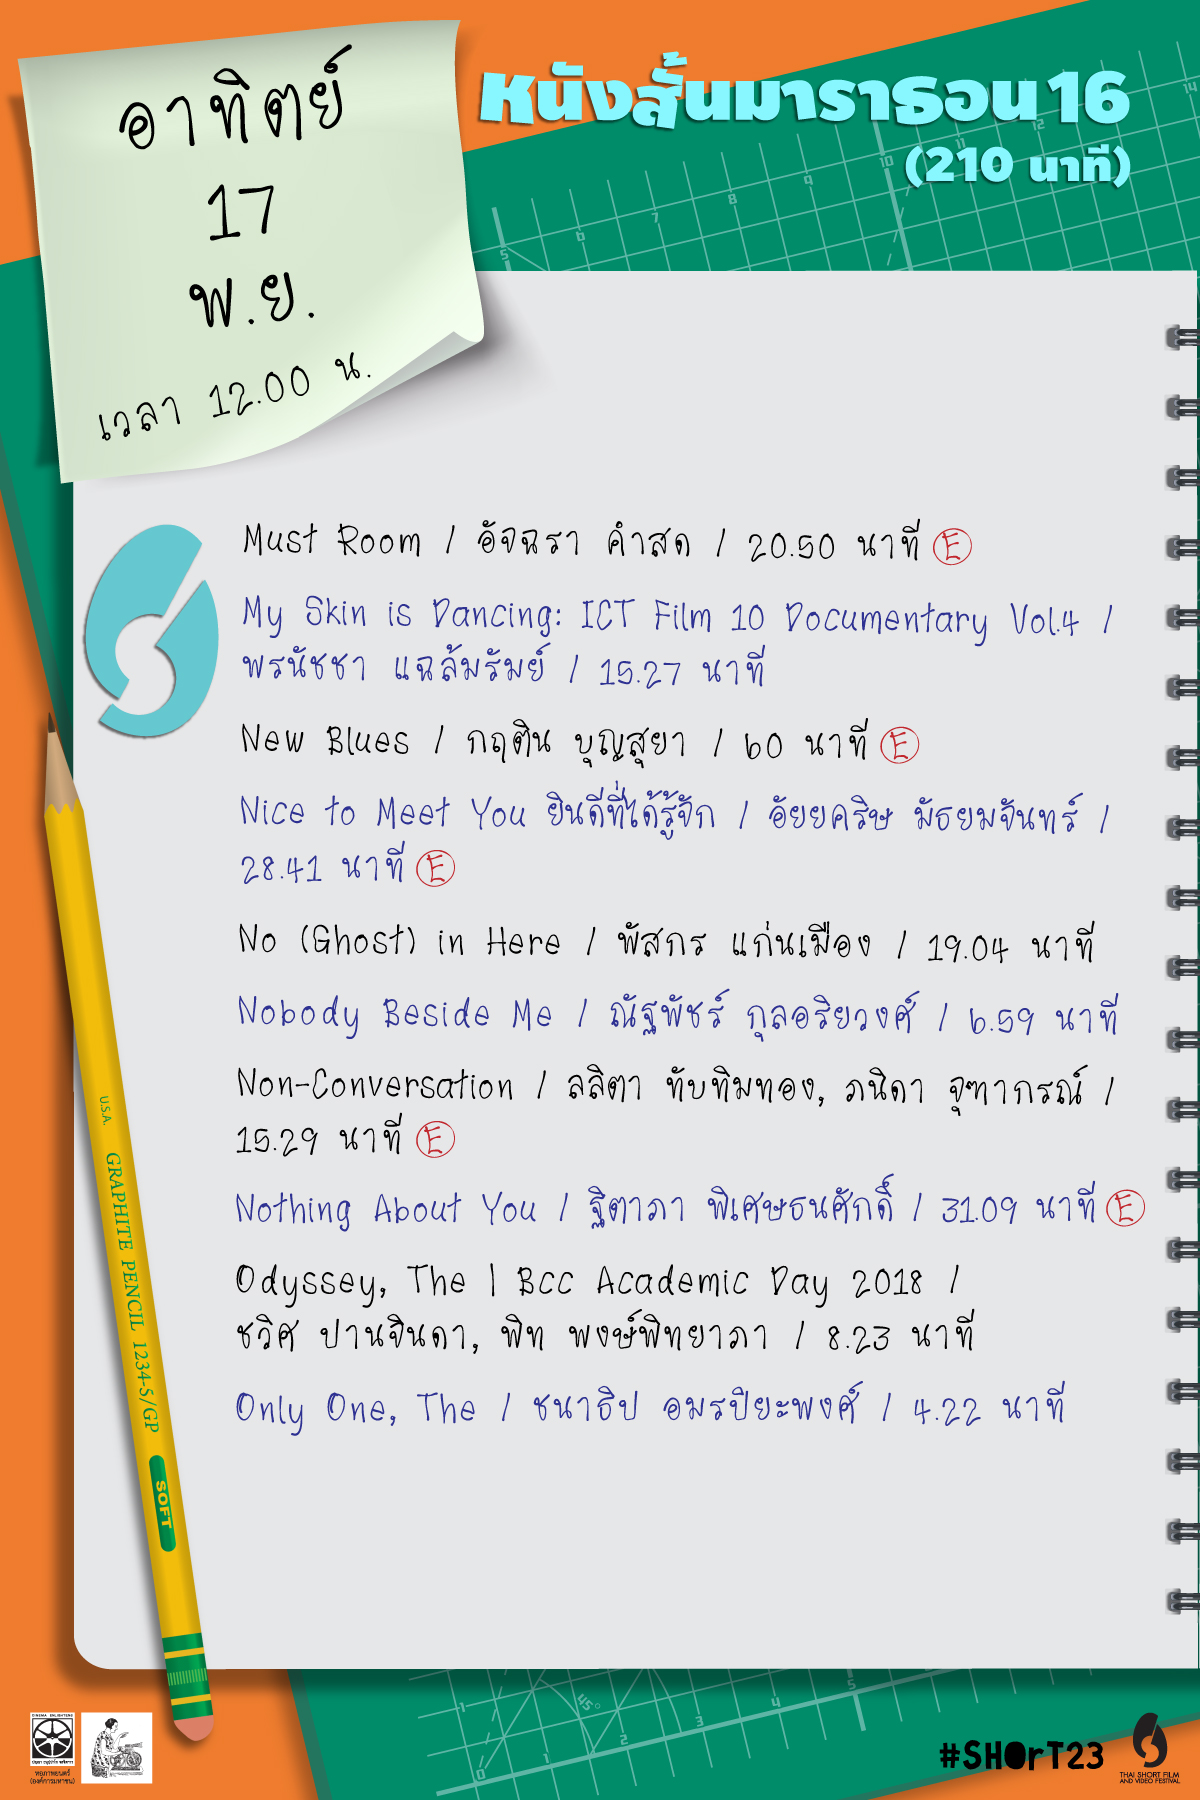 อาทิตย์
17
พ.ย.
เวลา 12.00 น.
หนังสั้นมาราธอน 16
(210 นาที)
Must Room / อัจฉรา คำสด / 20.50 นาที E
My Skin is Dancing: ICT Film 10 Documentary Vol.4 /
พรนัชชา แฉล้มรัมย์ / 15.27 นาที
New Blues / กฤติน บุญสุยา / 60 นาที E
Nice to Meet You ยินดีที่ได้รู้จัก / อัยยคริษ มัธยมจันทร์ /
28.41 นาที E
No (Ghost) in Here / พัสกร แก่นเมือง / 19.04 นาที
Nobody Beside Me / ณัฐพัชร์ กุลอริยวงศ์ / 6.59 นาที
Non-Conversation / ลลิตา ทับทิมทอง, ภนิดา จุฑาภรณ์ /
15.29 นาที E
Nothing About You / ฐิตาภา พิเศษธนศักดิ์ / 31.09 นาที E
Odyssey, The | Bcc Academic Day 2018 /
ชวิศ ปานจินดา, พิท พงษ์พิทยาภา / 8.23 นาที
Only One, The / ชนาธิป อมรปิยะพงศ์ / 4.22 นาที
U.S.A. GRAPHITE PENCIL 1234-5/GP
SOFT
หอภาพยนตร์
(องค์การมหาชน)
#SHOrT23
THAI SHORT FILM
AND VIDEO FESTIVAL
5 6 7 8 9 10 11 12 14
0 1 2 3 4 5
45°